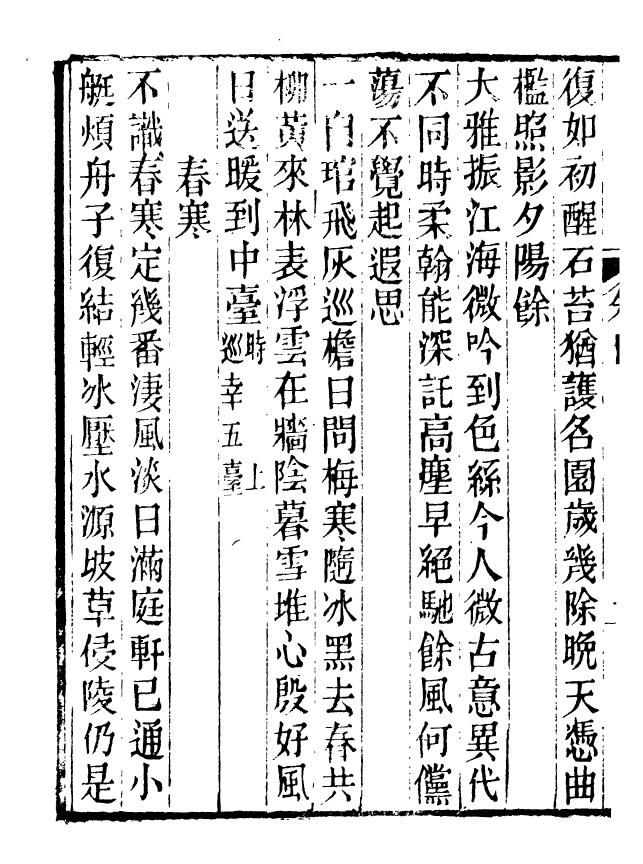 復如初醒石苔猶護名園歲幾除晚天憑曲
檻照影夕陽餘
大雅振江海微吟到色絲今人微古意異代
不同時柔翰能深託高塵早絕馳餘風何儻
蕩不覺起遐思
一自琯飛灰巡檐日問梅寒隨冰黑去春共
柳黃來林表浮雲在牆陰暮雪堆心殷好風
日送暖到中臺時上巡幸五臺
春寒
不識春寒定幾番淒風淡日滿庭軒已通小
艇煩舟子復結輕冰壓水源坡草侵陵仍是